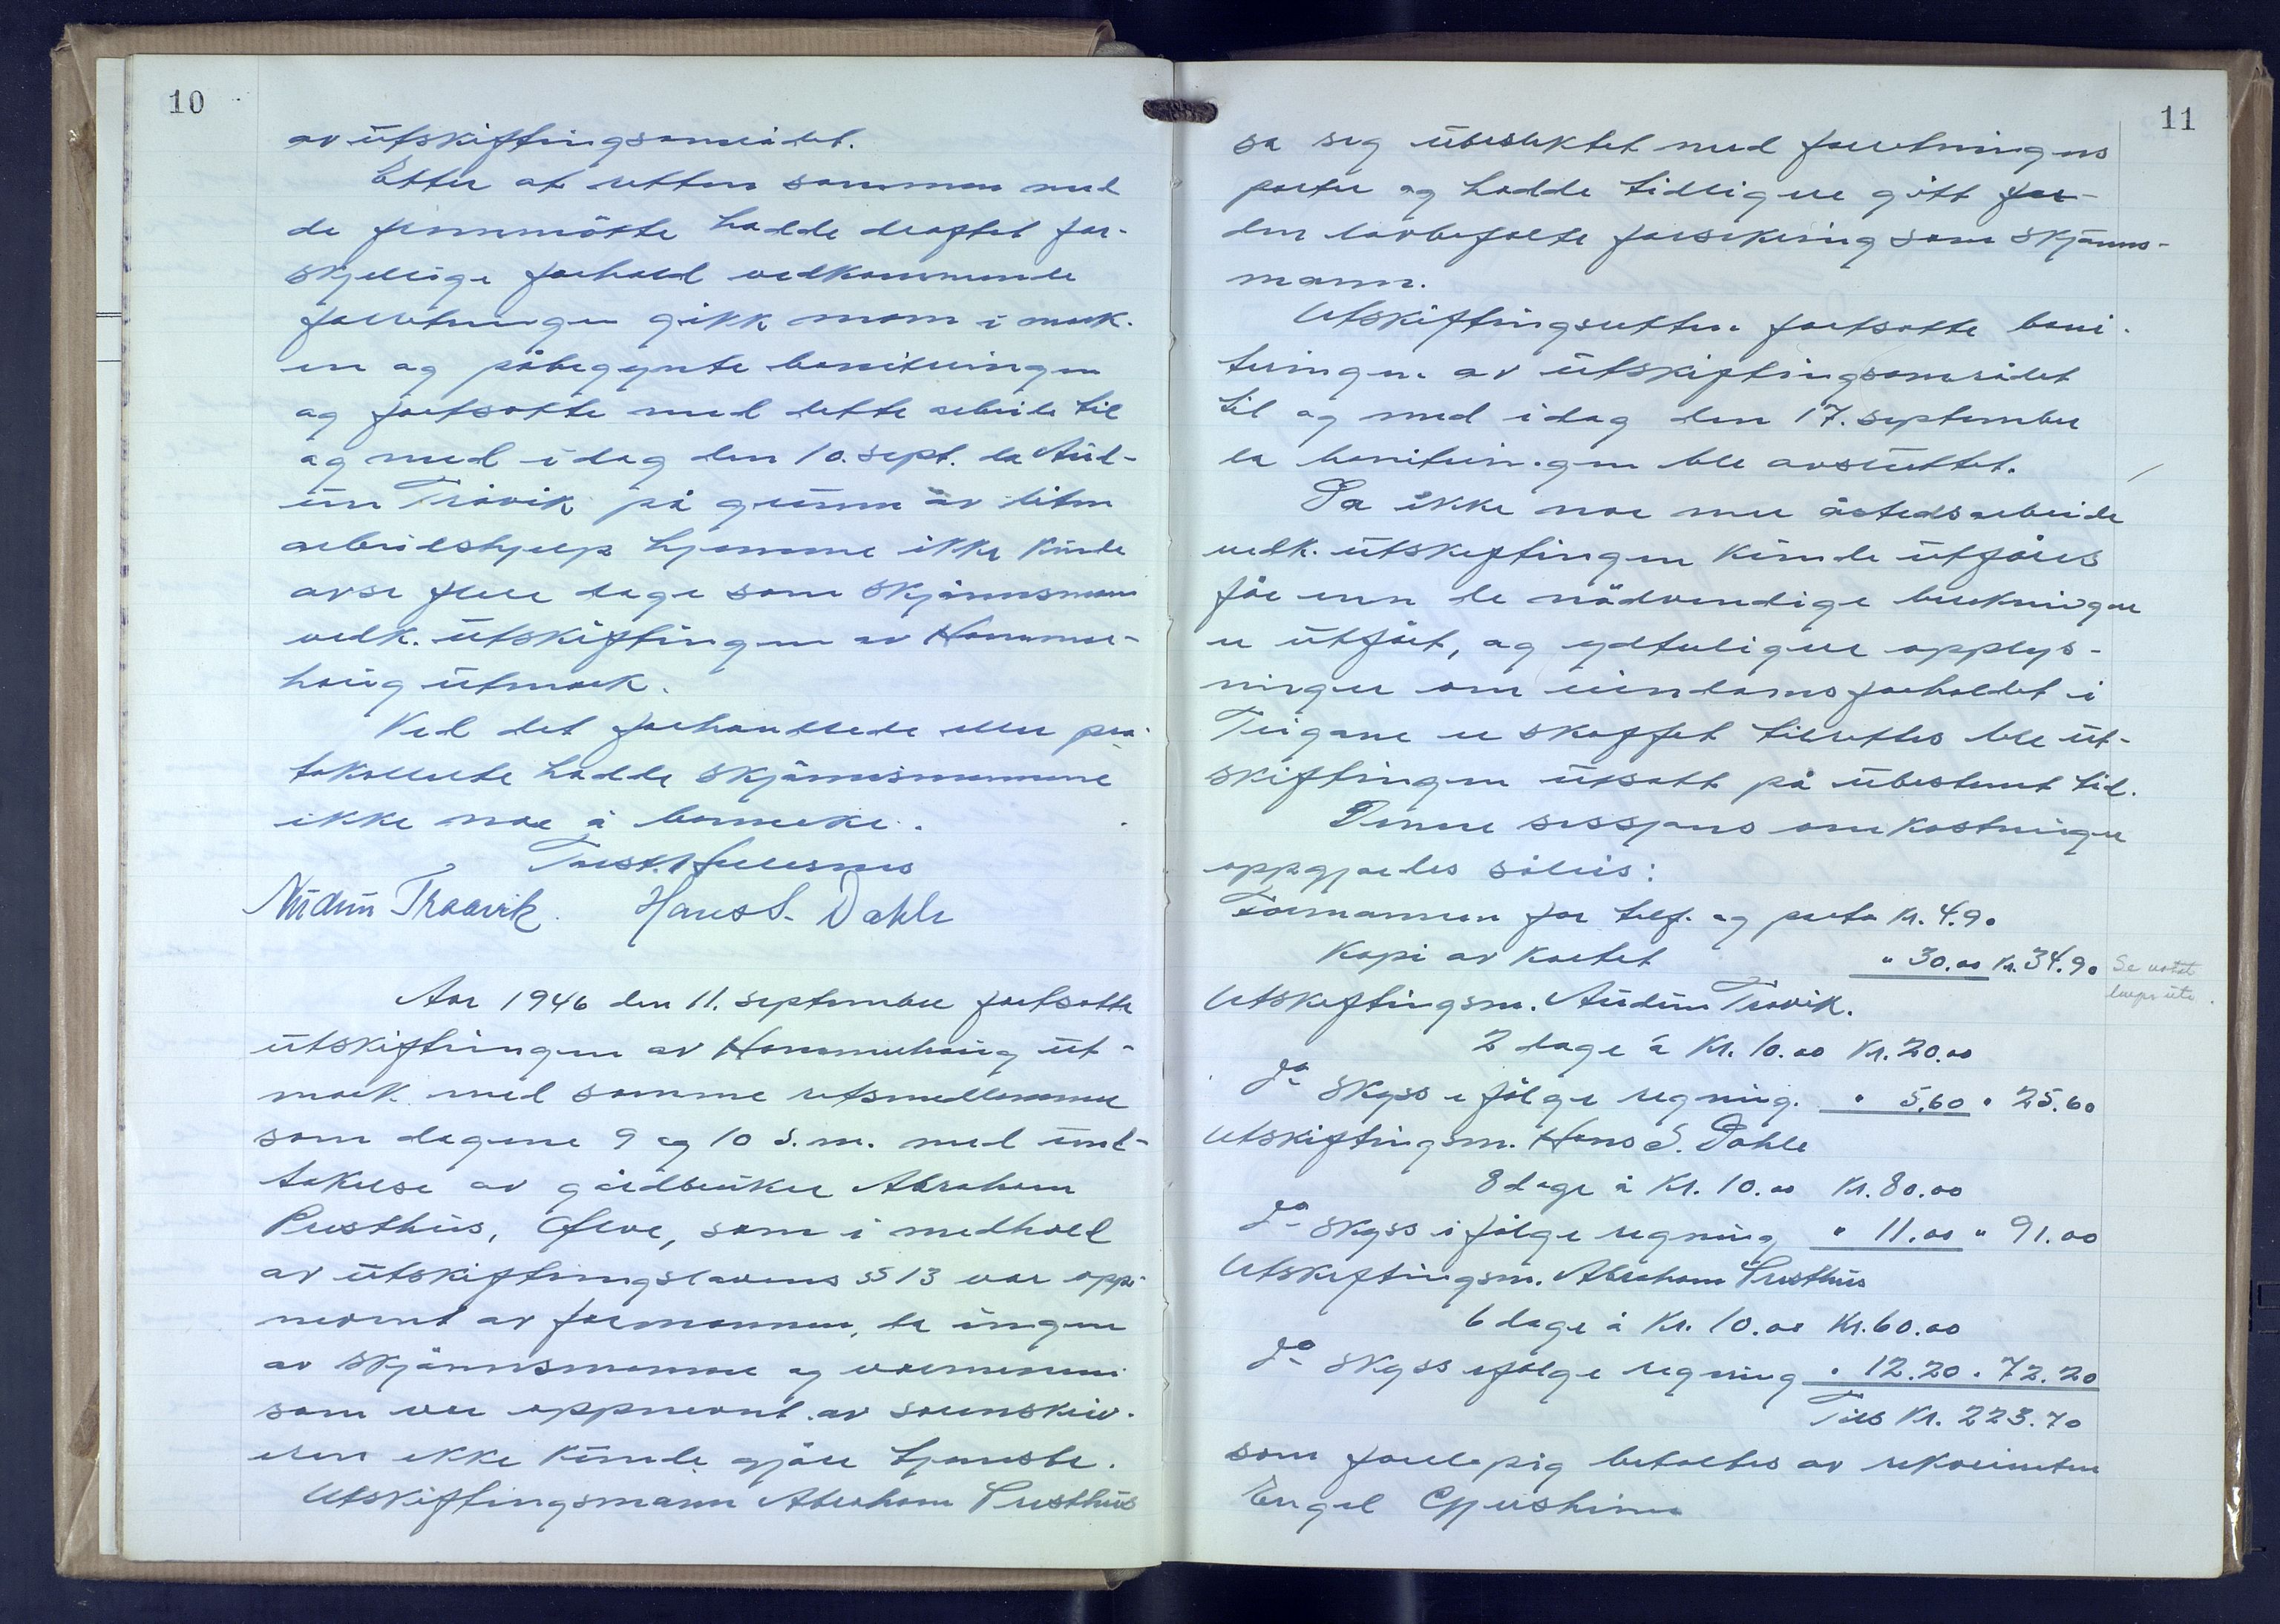 10
av utskiftingsområdet.
Etter at retten sammen med
de fremmötte hadde drøftet for-
skjellige forhold vedkommende
forretningen gikk man i mark-
en og påbegynte boniteringen
og fortsatte med dette arbeide til
og med idag den 10. sept. da Aud-
un Tråvik på grunn av liten
arbeidshjelp hjemme ikke kunde
avse flere dage som skjønnsmann
vedk. utskiftingen av Hommer-
haug utmark.
Ved det forhandlede eller pro-
tokollerte hadde skjønnsmennene
ikke noe å bemerke.
Torst. Hellesnes
Audun Traavik. Hans S. Dahle
Aar 1946 den 11. september fortsatte
utskiftningen av Hommerhaug ut-
mark med samme retsmedlemmer
som dagene 9 og 10 s.m. med und-
takelse av gårdbruker Abraham
Presthus, Ølve, som i medhold
av utskiftningslovens §§ 13 var opp-
nevnt av formannen, da ingen
av skjønnsmennene og varamenn
som var oppnevnt av sorenskriv-
eren ikke kunde gjøre tjeneste.
Utskiftingsmann Abraham Presthus
11
sa seg ubeslektet med forretningens
parter og hadde tidligere gitt for-
den lovbefalte forsikring som skjønns-
mann.
Utskiftingsretten fortsatte boni-
teringen av utskiftingsområdet
til og med idag den 17. september
da boniteringen ble avsluttet.
Da ikke noe mer åstedsarbeide
vedk. utskiftingen kunde utføres
før enn de nödvendige beregninger
er utført, og ydterligere opplys-
ninger om eiendomsforholdet i
Teigane er skaffet tilrettes ble ut-
skiftingen utsatt på ubestemt tid.
Denne sessjons omkostninger
oppgjordes således:
Formannen for telf. og porto Kr. 4.90
Kopi av kartet " 30.00 Kr. 34.90
Se notat
Utskiftingsm. Audun Tråvik.
2 dage à Kr. 10.00 Kr. 20.00
do skyss i følge regning. " 5.60 " 25.60
Utskiftingsm. Hans S. Dahle
8 dage à Kr. 10.00 Kr. 80.00
do skyss i følge regning " 11.00 " 91.00
Utskiftingsm. Abraham Presthus
6 dage à Kr. 10.00 Kr. 60.00
do skyss ifølge regning " 12.20 " 72.20
Tils Kr. 223.70
som foreløpig betaltes av rekvirenten
Engel Gjersheim